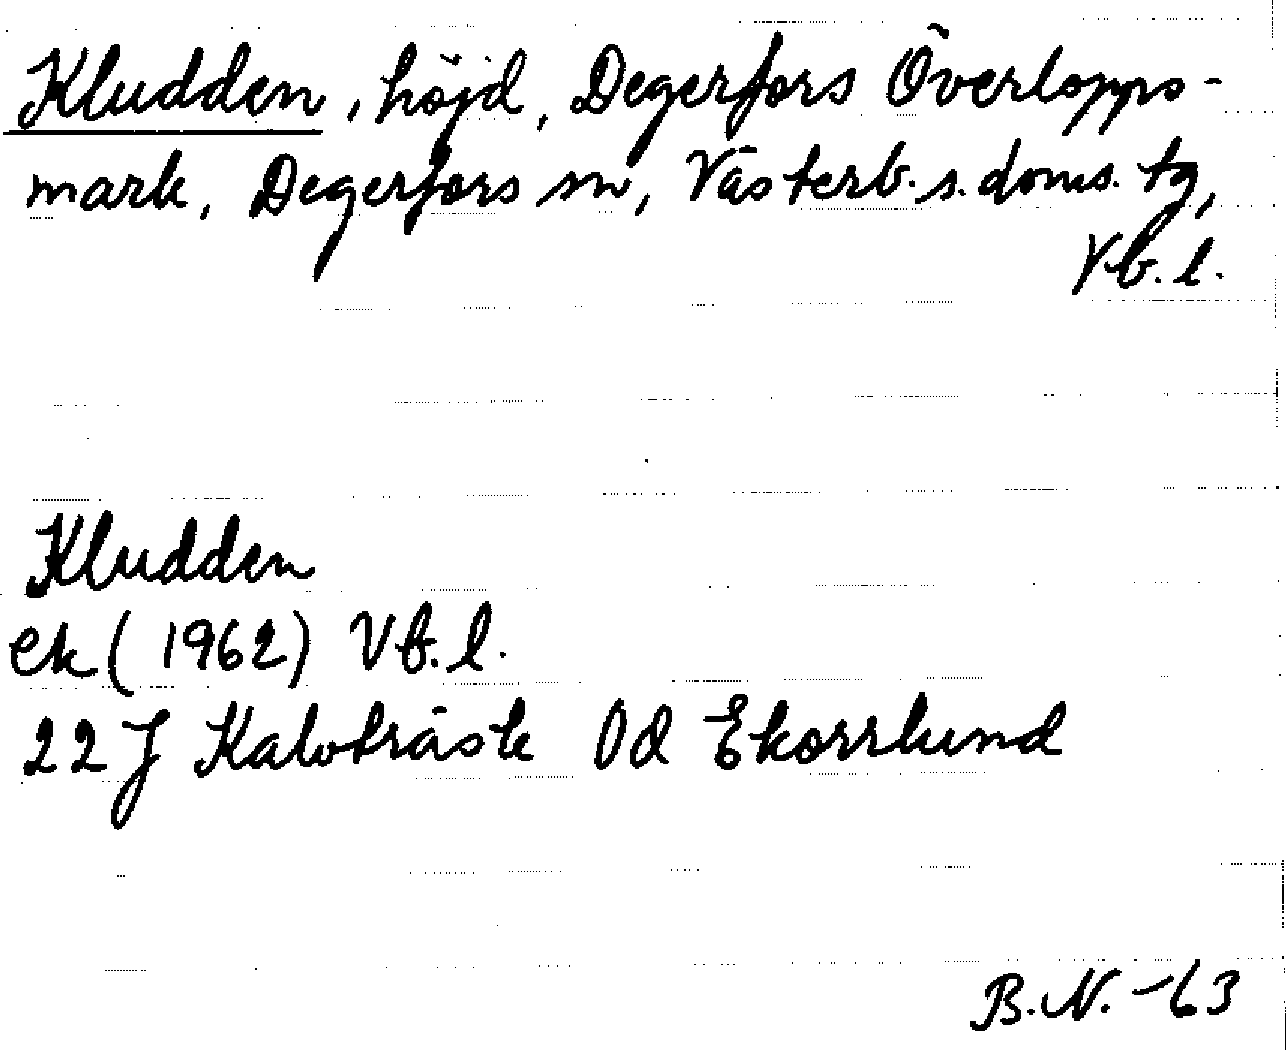 Kludden, höjd, Degerfors Överlopps-
mark, Degerfors sn, Västerb. s. doms. tg,
Vb. l.
Kludden
ek (1962) Vb. l.
22 J Kalvträsk 0d Ekorrlund
B.N. -63